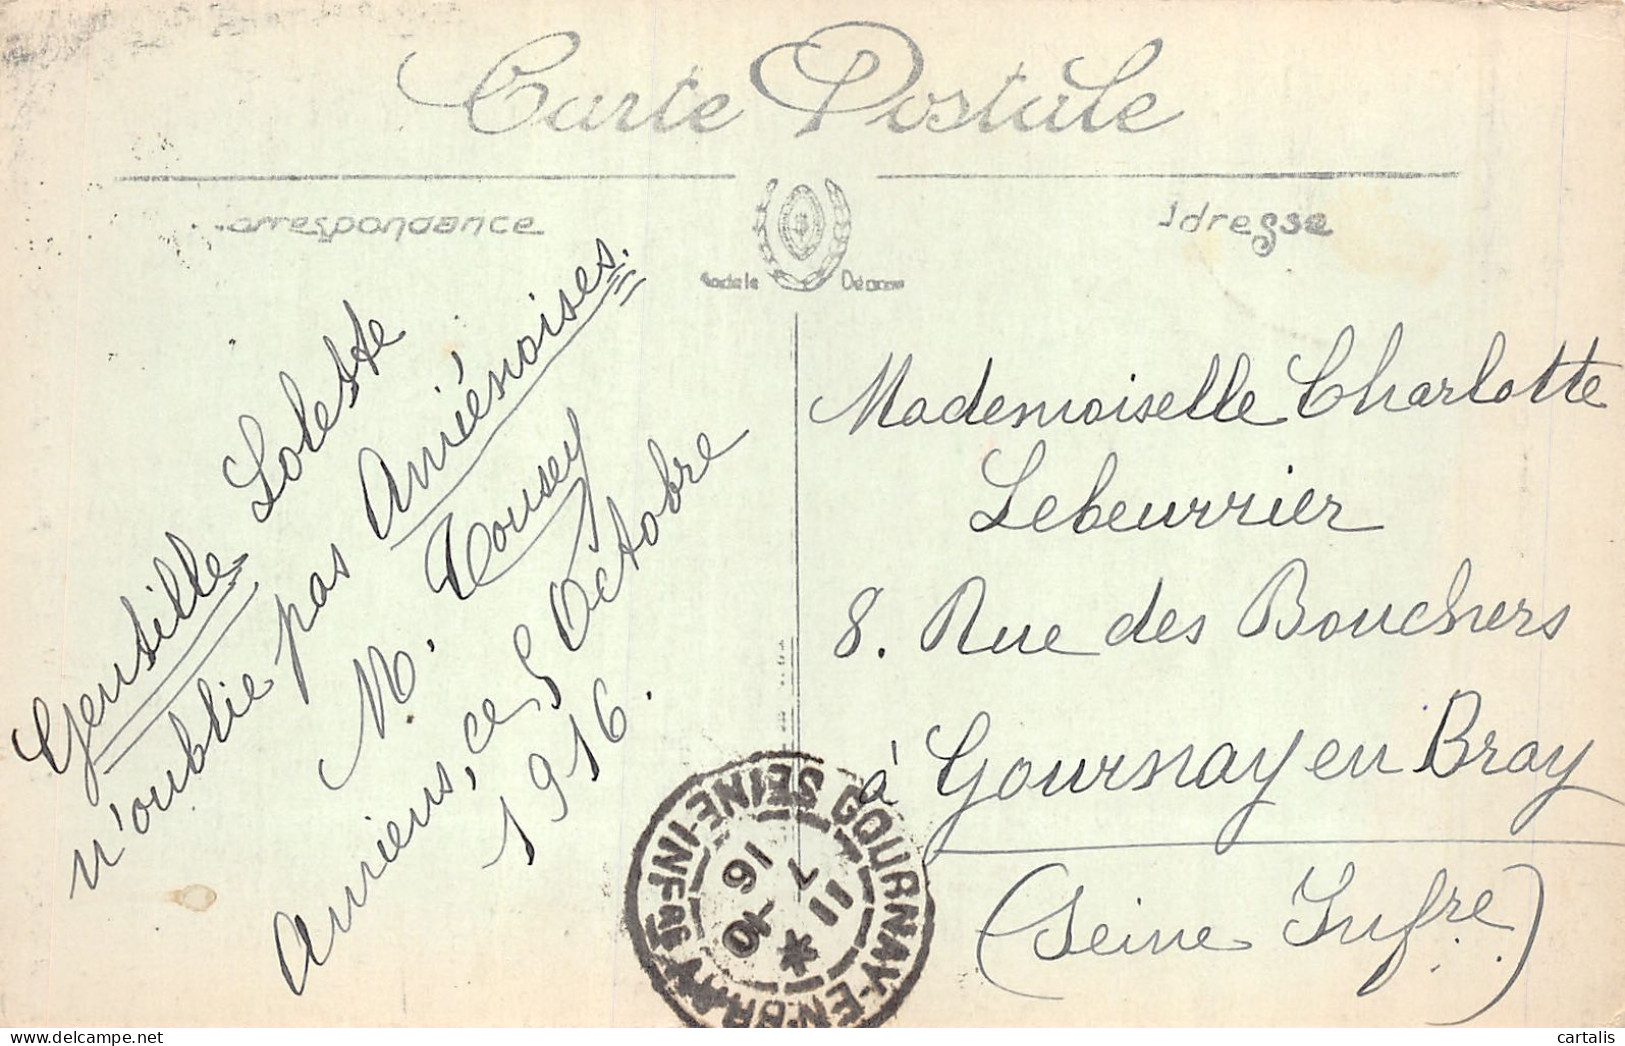 Carte Postale
Correspondance
Adresse
Modèle Déposé
Gentille Lolette
n'oublie pas Amiénoises.
M. Tousey
Amiens, ce 5 Octobre
1916.
Mademoiselle Charlotte
Lebeurrier
8. Rue des Bouchers
à Gournay en Bray
(Seine Infre)
GOURNAY-EN-BRAY SEINE-INFRE
11
7
16
cartalis